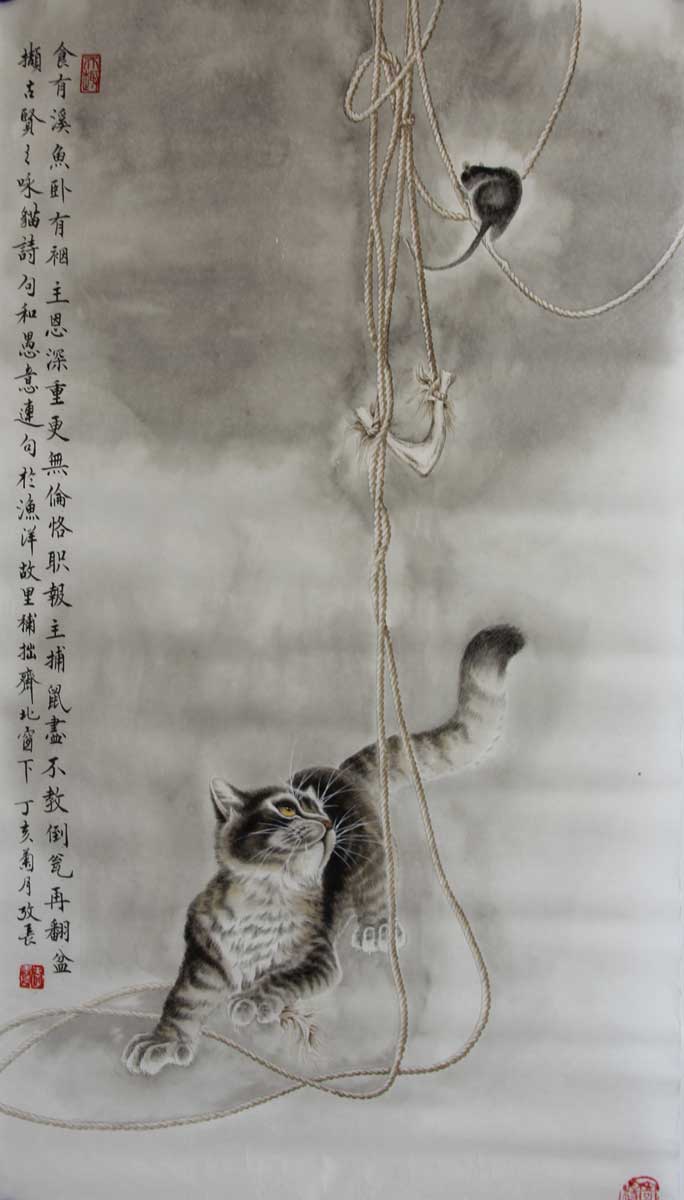 食有溪魚卧有裀主恩深重更無倫恪职報主捕鼠盡不教倒瓮再翻盆
擷古賢之咏貓詩句和愚意連句於漁洋故里補拙齊北窗下丁亥菊月孜長